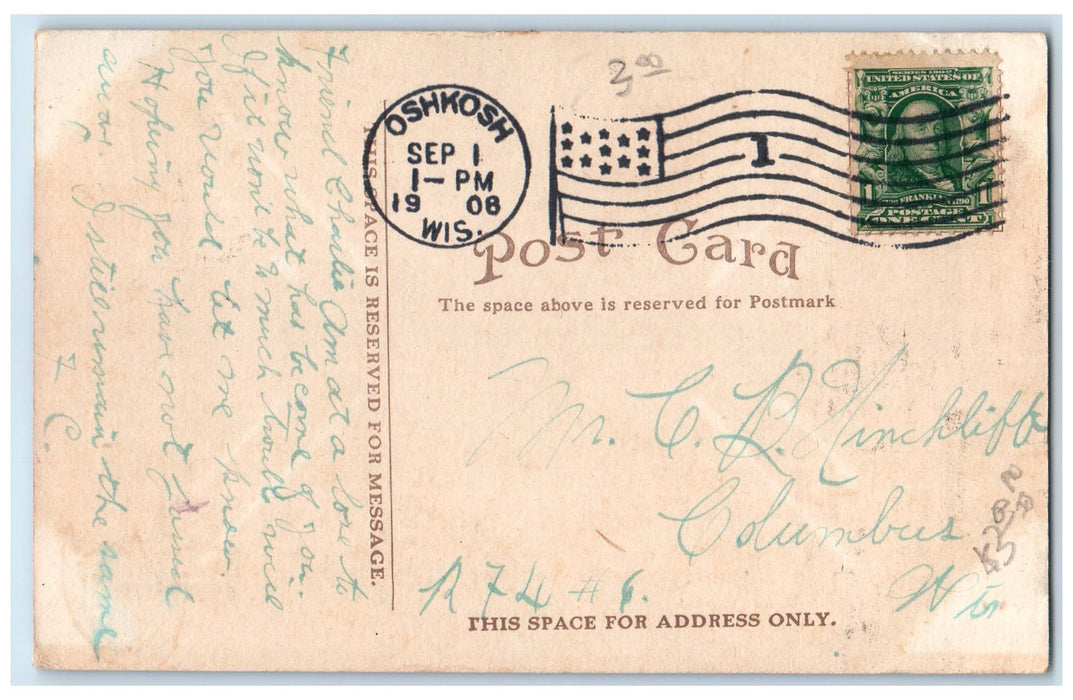 3.00
OSHKOSH
SEP 1
1 - PM
19 08
WIS.
1
SERIES 1902
UNITED STATES OF
AMERICA
FRANKLIN
1 1
POSTAGE
ONE CENT
Post Card
The space above is reserved for Postmark
THIS SPACE IS RESERVED FOR MESSAGE.
THIS SPACE FOR ADDRESS ONLY.
Friend Charlie Am at a loss to
know what has become of you.
If it won't be to much trouble will
you would let me know.
Hoping you have not
away. I still remain the same
C.
Mr. C. B. Hinckliff
Columbus
Wis
R #6.